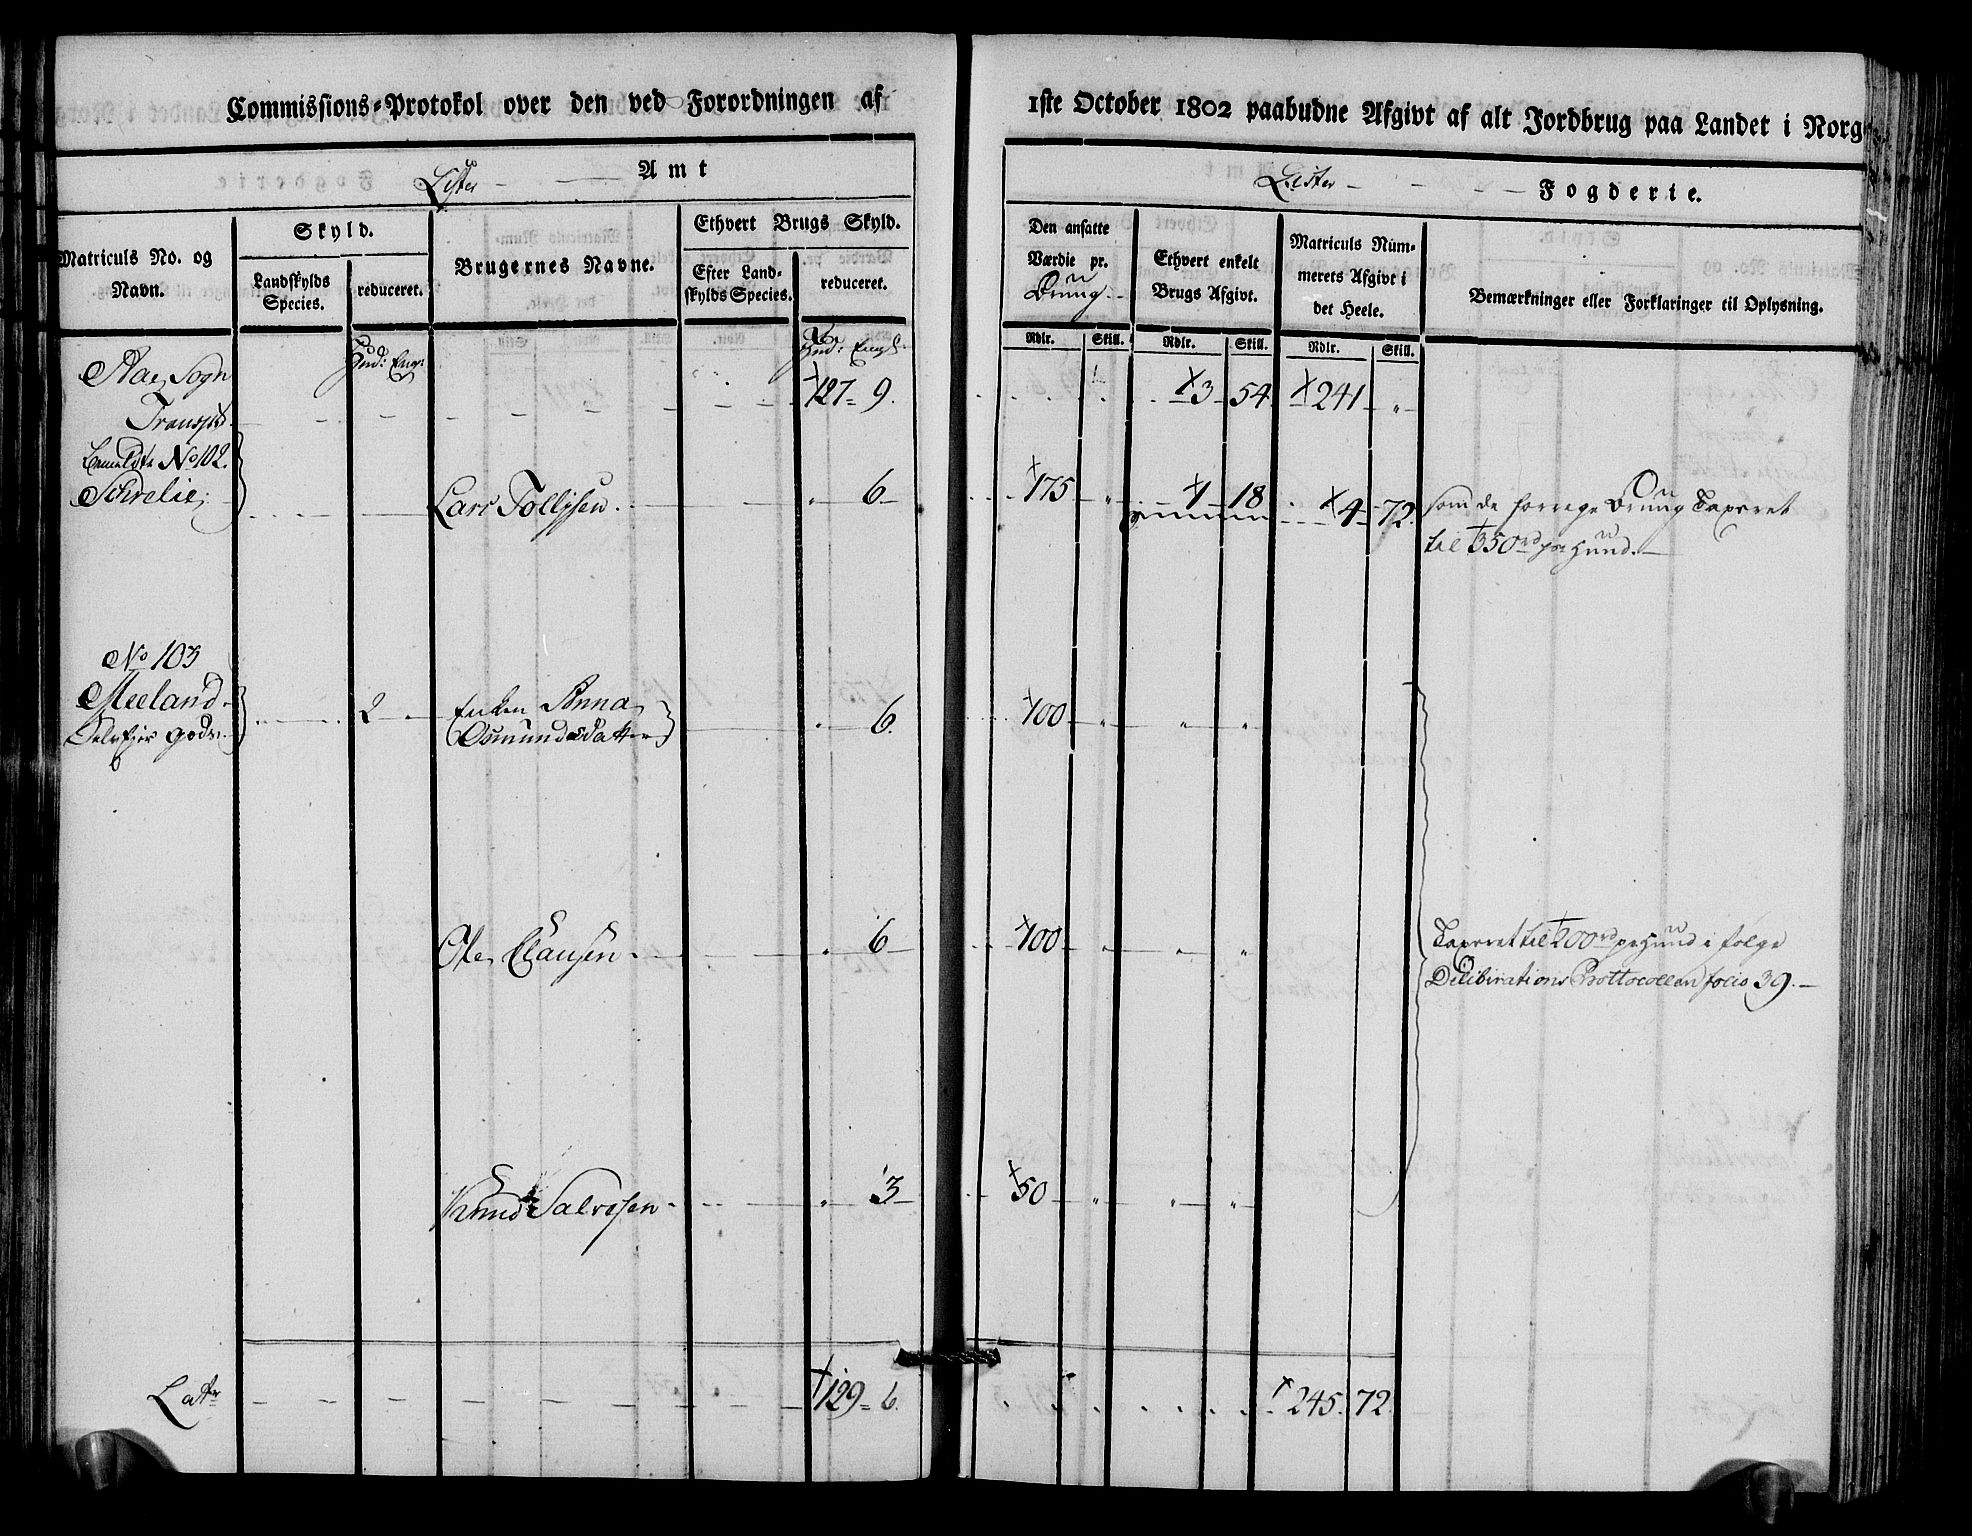 Commissions-Protokol over den ved Forordningen af
Lister Amt
Matriculs No. og Navn.
Skyld.
Landskylds Species.
reduceret.
Brugernes Navne.
Ethvert Brugs Skyld.
Efter Landskylds Species.
reduceret.
Hud: Eng:
Hud: Eng:
Aae Sogn
Transpt 127 9.
bemeldte No 102.
Schrelie, Lars Tollefsen. " 6
No 103
Meeland 2 Enken Anna
Selvejer gods. Osmundsdatter " 6.
Ole Clausen " 6
Knud Salvesen " 3
Latr 129 6.
1ste October 1802 paabudne Afgivt af alt Jordbrug paa Landet i Norg
Lister Fogderie.
Den ansatte Værdie pr. Brug
Ethvert enkelt Brugs Afgivt.
Matriculs Nummerets Afgivt i det Heele.
Bemærkninger eller Forklaringer til Oplysning.
Rdlr. Skill. Rdlr. Skill. Rdlr. Skill.
3 54 241 "
175 " 1 18 4 72. som de forrige Brug Taxeret
til 350 rd pr Hud.
100 " " "
100 " " " Taxeret til 200 rd pr Hud i følge
Deliberations Prottocollen folio 39.
50 " " "
245. 72.